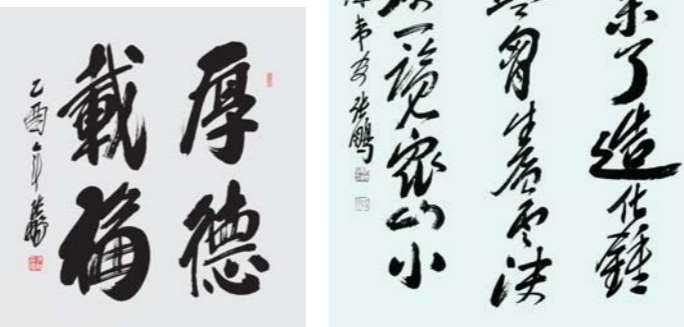 厚德
載福
乙酉年
了造化鍾
胷生層雲決
一覽衆山小
張鵬